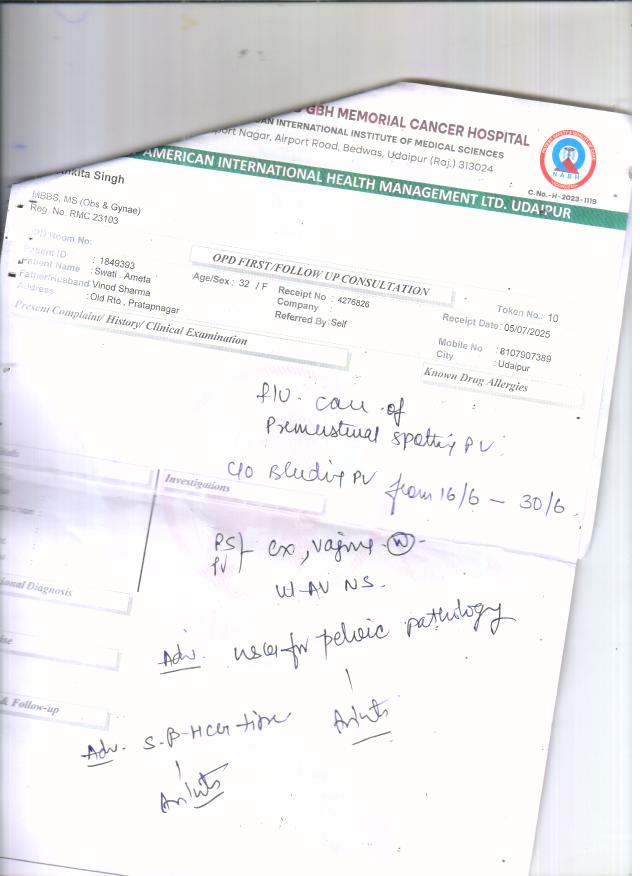 GBH MEMORIAL CANCER HOSPITAL
AN INTERNATIONAL INSTITUTE OF MEDICAL SCIENCES
port Nagar, Airport Road, Bedwas, Udaipur (Raj.) 313024
AMERICAN INTERNATIONAL HEALTH MANAGEMENT LTD. UDAIPUR
NABH
C. No.-H-2023-1119
nkita Singh
MBBS, MS (Obs & Gynae)
Reg. No. RMC 23103
OPD Room No:
OPD FIRST/FOLLOW UP CONSULTATION
Patient ID : 1849393
Patient Name : Swati . Ameta
Father/Husband Vinod Sharma
Address : Old Rto , Pratapnagar
Age/Sex : 32 / F
Receipt No : 4276826
Company :
Referred By : Self
Token No.: 10
Receipt Date : 05/07/2025
Mobile No : 8107907389
City : Udaipur
Present Complaint/ History/ Clinical Examination
Known Drug Allergies
F/U. case of
Premenstrual spotting PV
C/O Bleeding PV from 16/6 - 30/6.
Investigations
PS/PV cx, vagina - N -
Ut-AV NS.
ional Diagnosis
Adv. USG for pelvic pathology
& Follow-up
Adv. S. B-HCG